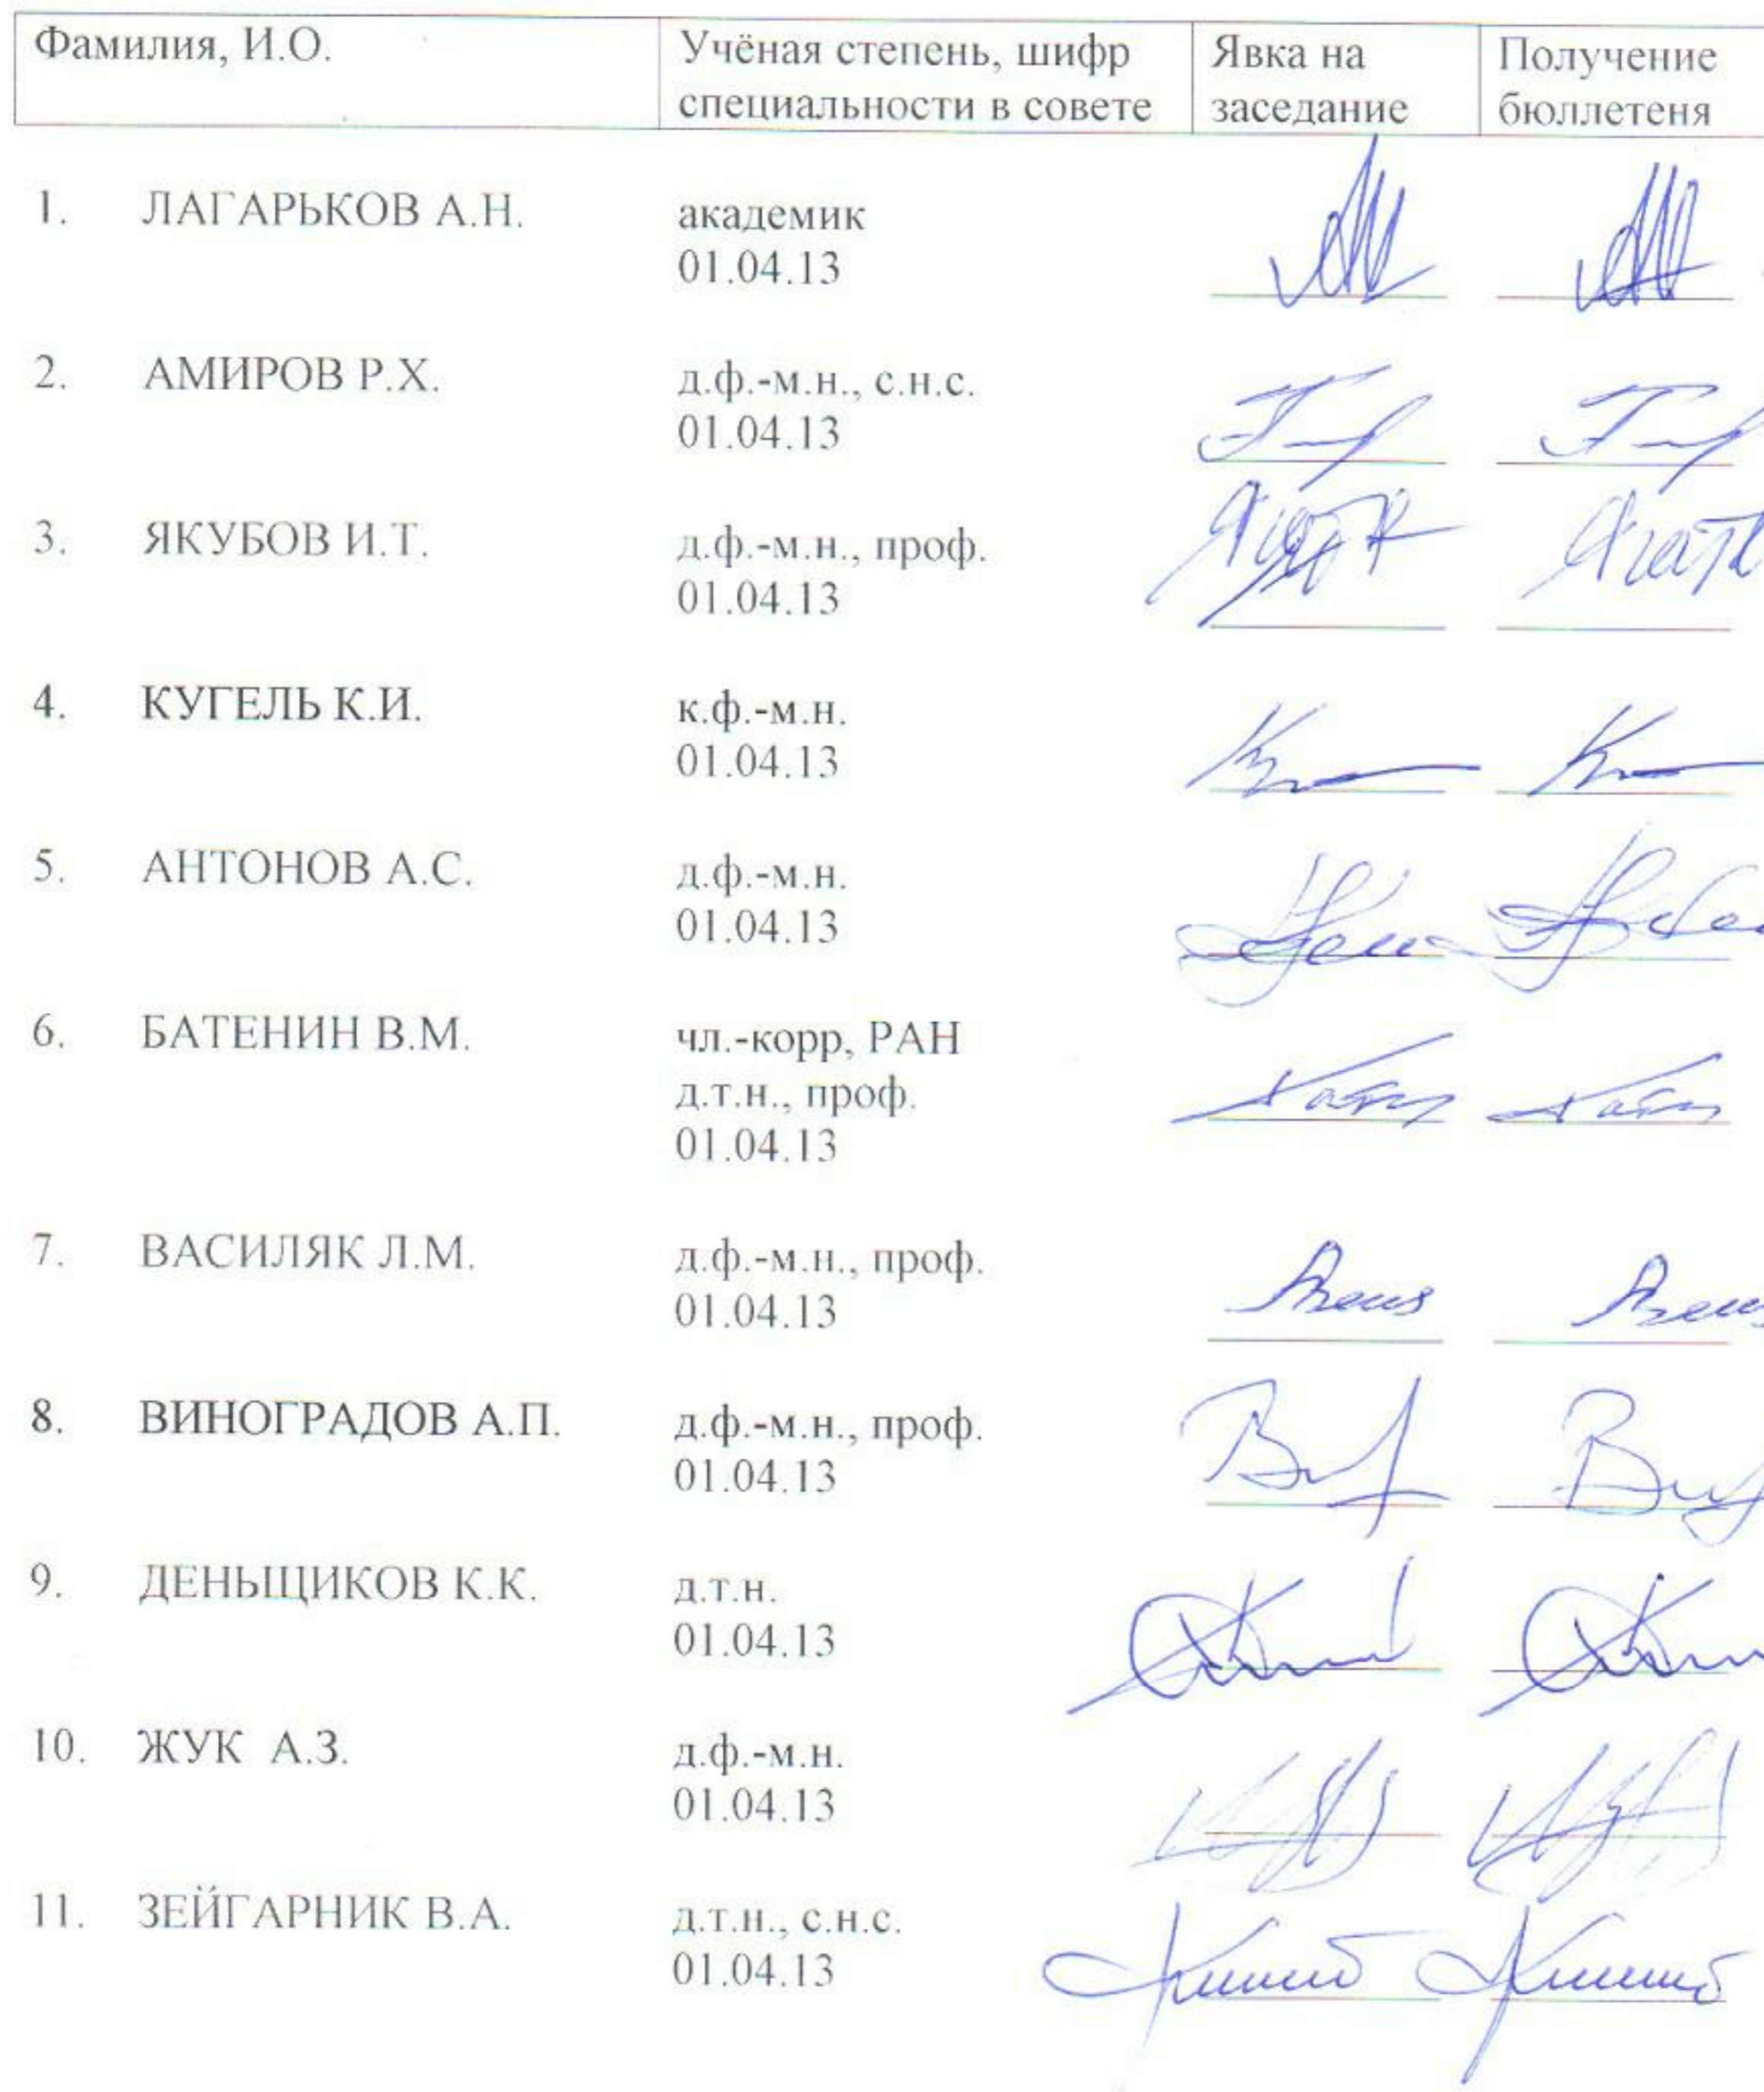 Фамилия, И.О. Учёная степень, шифр Явка на Получение
специальности в совете заседание бюллетеня
1. ЛАГАРЬКОВ А.Н. академик
01.04.13
2. АМИРОВ Р.Х. д.ф.-м.н., с.н.с.
01.04.13
3. ЯКУБОВ И.Т. д.ф.-м.н., проф.
01.04.13
4. КУГЕЛЬ К.И. к.ф.-м.н.
01.04.13
5. АНТОНОВ А.С. д.ф.-м.н.
01.04.13
6. БАТЕНИН В.М. чл.-корр, РАН
д.т.н., проф.
01.04.13
7. ВАСИЛЯК Л.М. д.ф.-м.н., проф.
01.04.13
8. ВИНОГРАДОВ А.П. д.ф.-м.н., проф.
01.04.13
9. ДЕНЬЩИКОВ К.К. д.т.н.
01.04.13
10. ЖУК А.З. д.ф.-м.н.
01.04.13
11. ЗЕЙГАРНИК В.А. д.т.н., с.н.с.
01.04.13